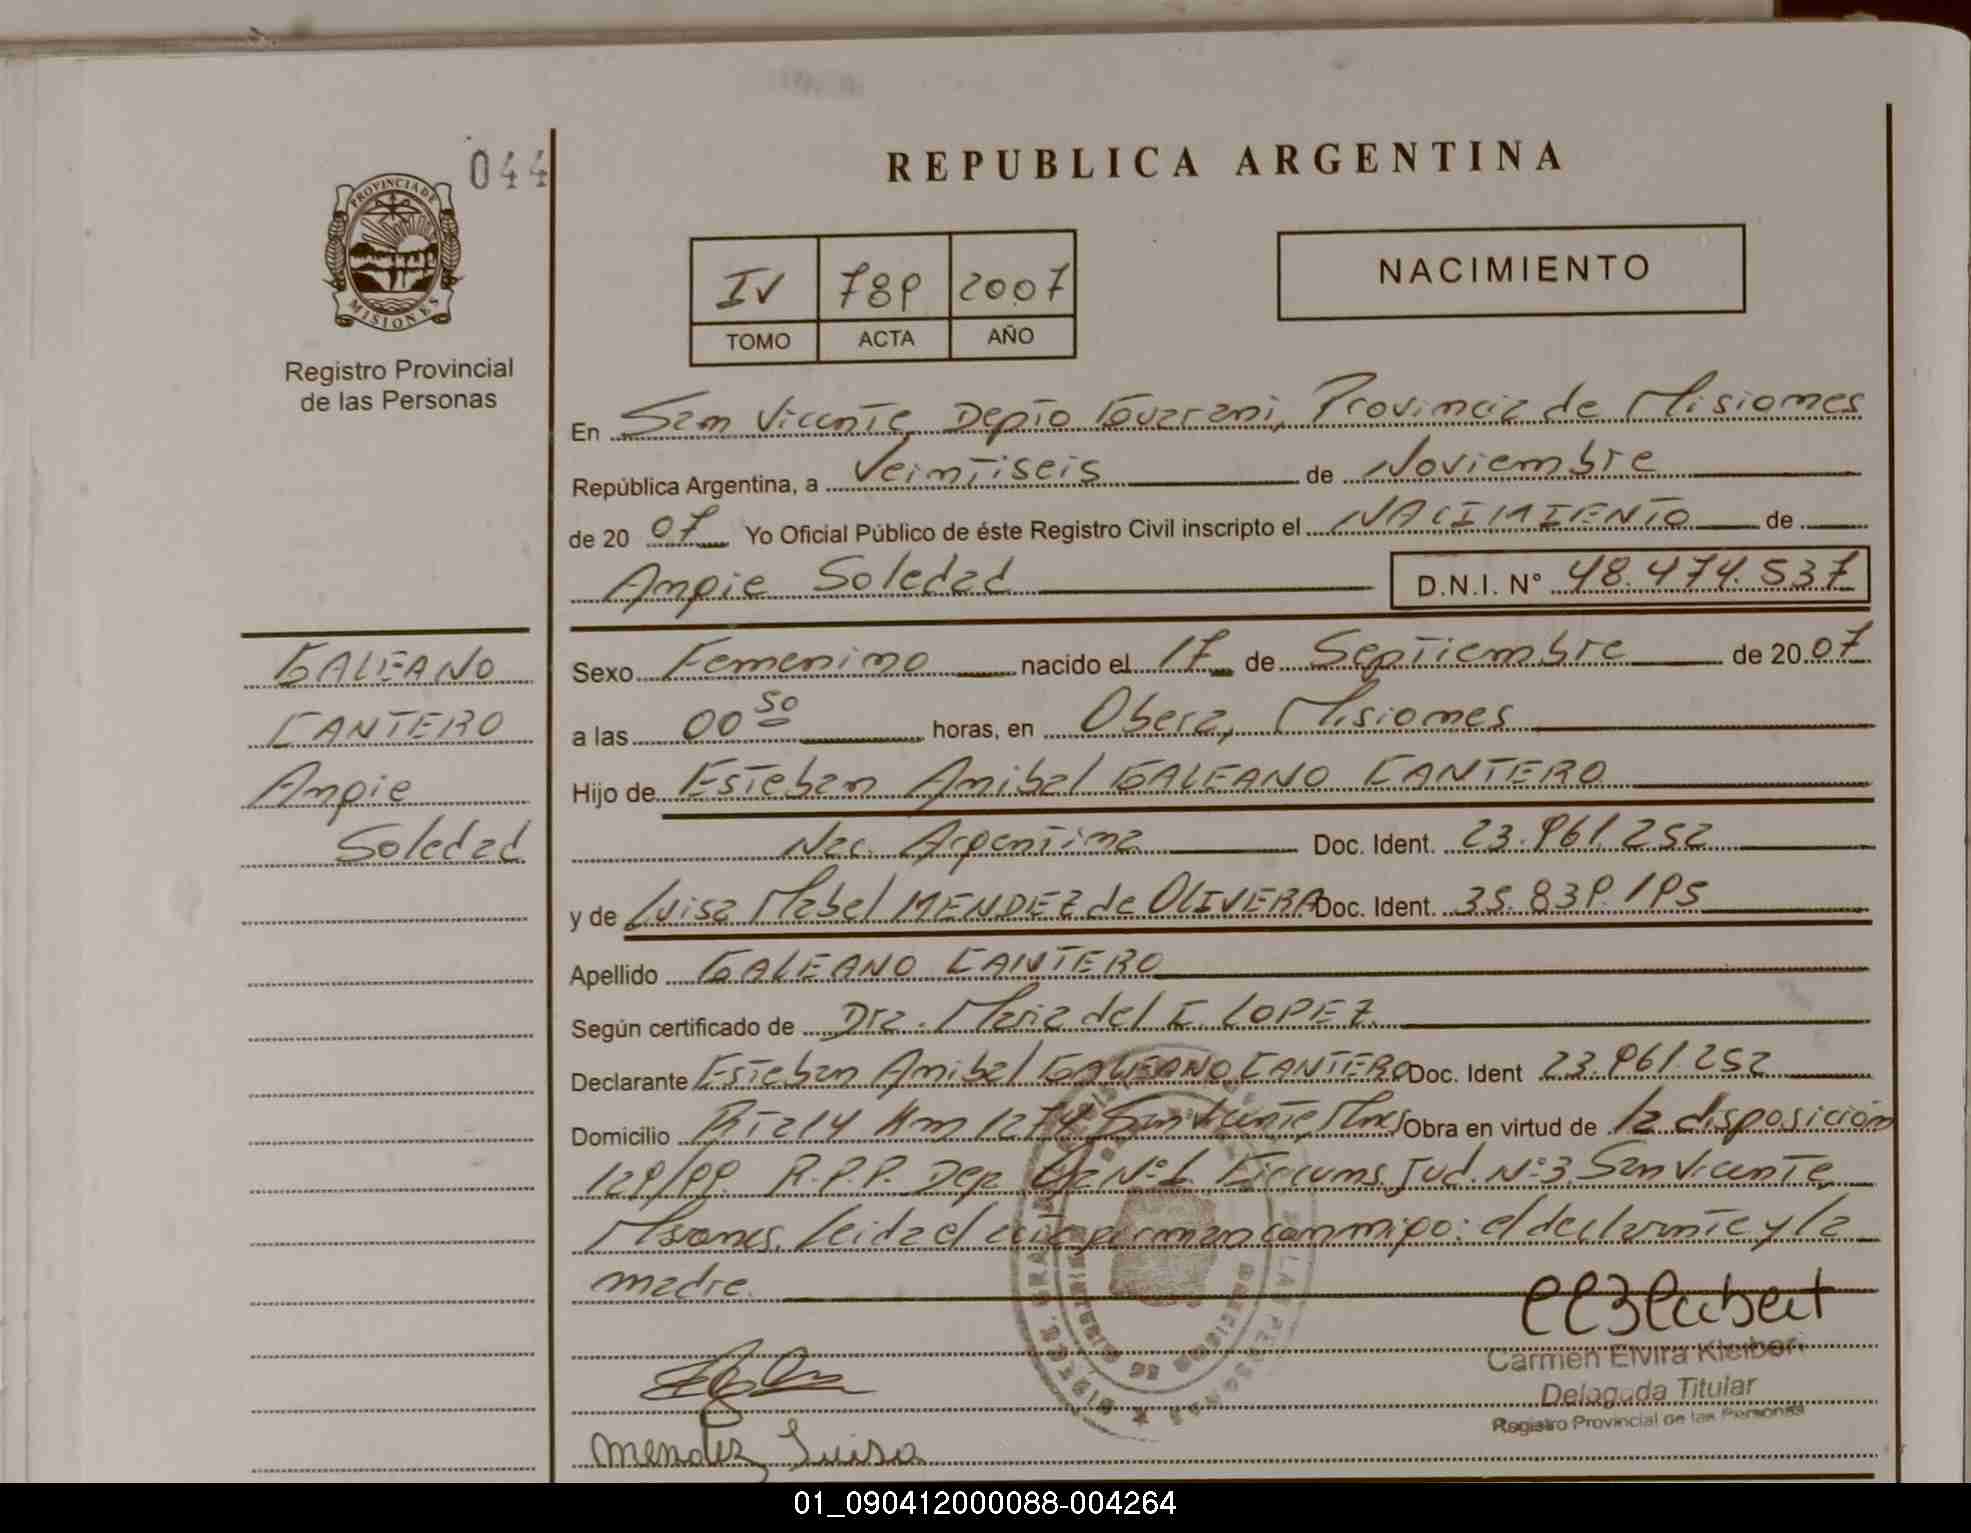 044
PROVINCIA DE
MISIONES
Registro Provincial
de las Personas
REPUBLICA ARGENTINA
IV 789 2007
TOMO ACTA AÑO
NACIMIENTO
En San Vicente Depto Guarani, Provincia de Misiones
República Argentina, a Veintiseis de Noviembre
de 20 07 Yo Oficial Público de éste Registro Civil inscripto el NACIMIENTO de
Angie Soledad D.N.I. N° 48.474.537
GALEANO
CANTERO
Angie
Soledad
Sexo Femenino nacido el 17 de Septiembre de 20 07
a las 00 50 horas, en Obera, Misiones
Hijo de Esteban Anibal GALEANO CANTERO
Nac. Argentina Doc. Ident. 23.961.252
y de Luisa Mabel MENDEZ de OLIVERA Doc. Ident. 35.839.195
Apellido GALEANO CANTERO
Según certificado de Dra. Maria del C. LOPEZ
Declarante Esteban Anibal GALEANO CANTERO Doc. Ident 23.961.252
Domicilio RTa 14 Km 1274 San Vicente Mnes Obra en virtud de la disposición
129/99. R.P.P. Deg N°1 Circuns. Jud. N°3. San Vicente,
Misiones. Leida el acta firman conmigo: el declarante y la
madre.
Carmen Elvira Kleibert
Delegada Titular
Registro Provincial de las Personas
Mendez Luisa
01_090412000088-004264